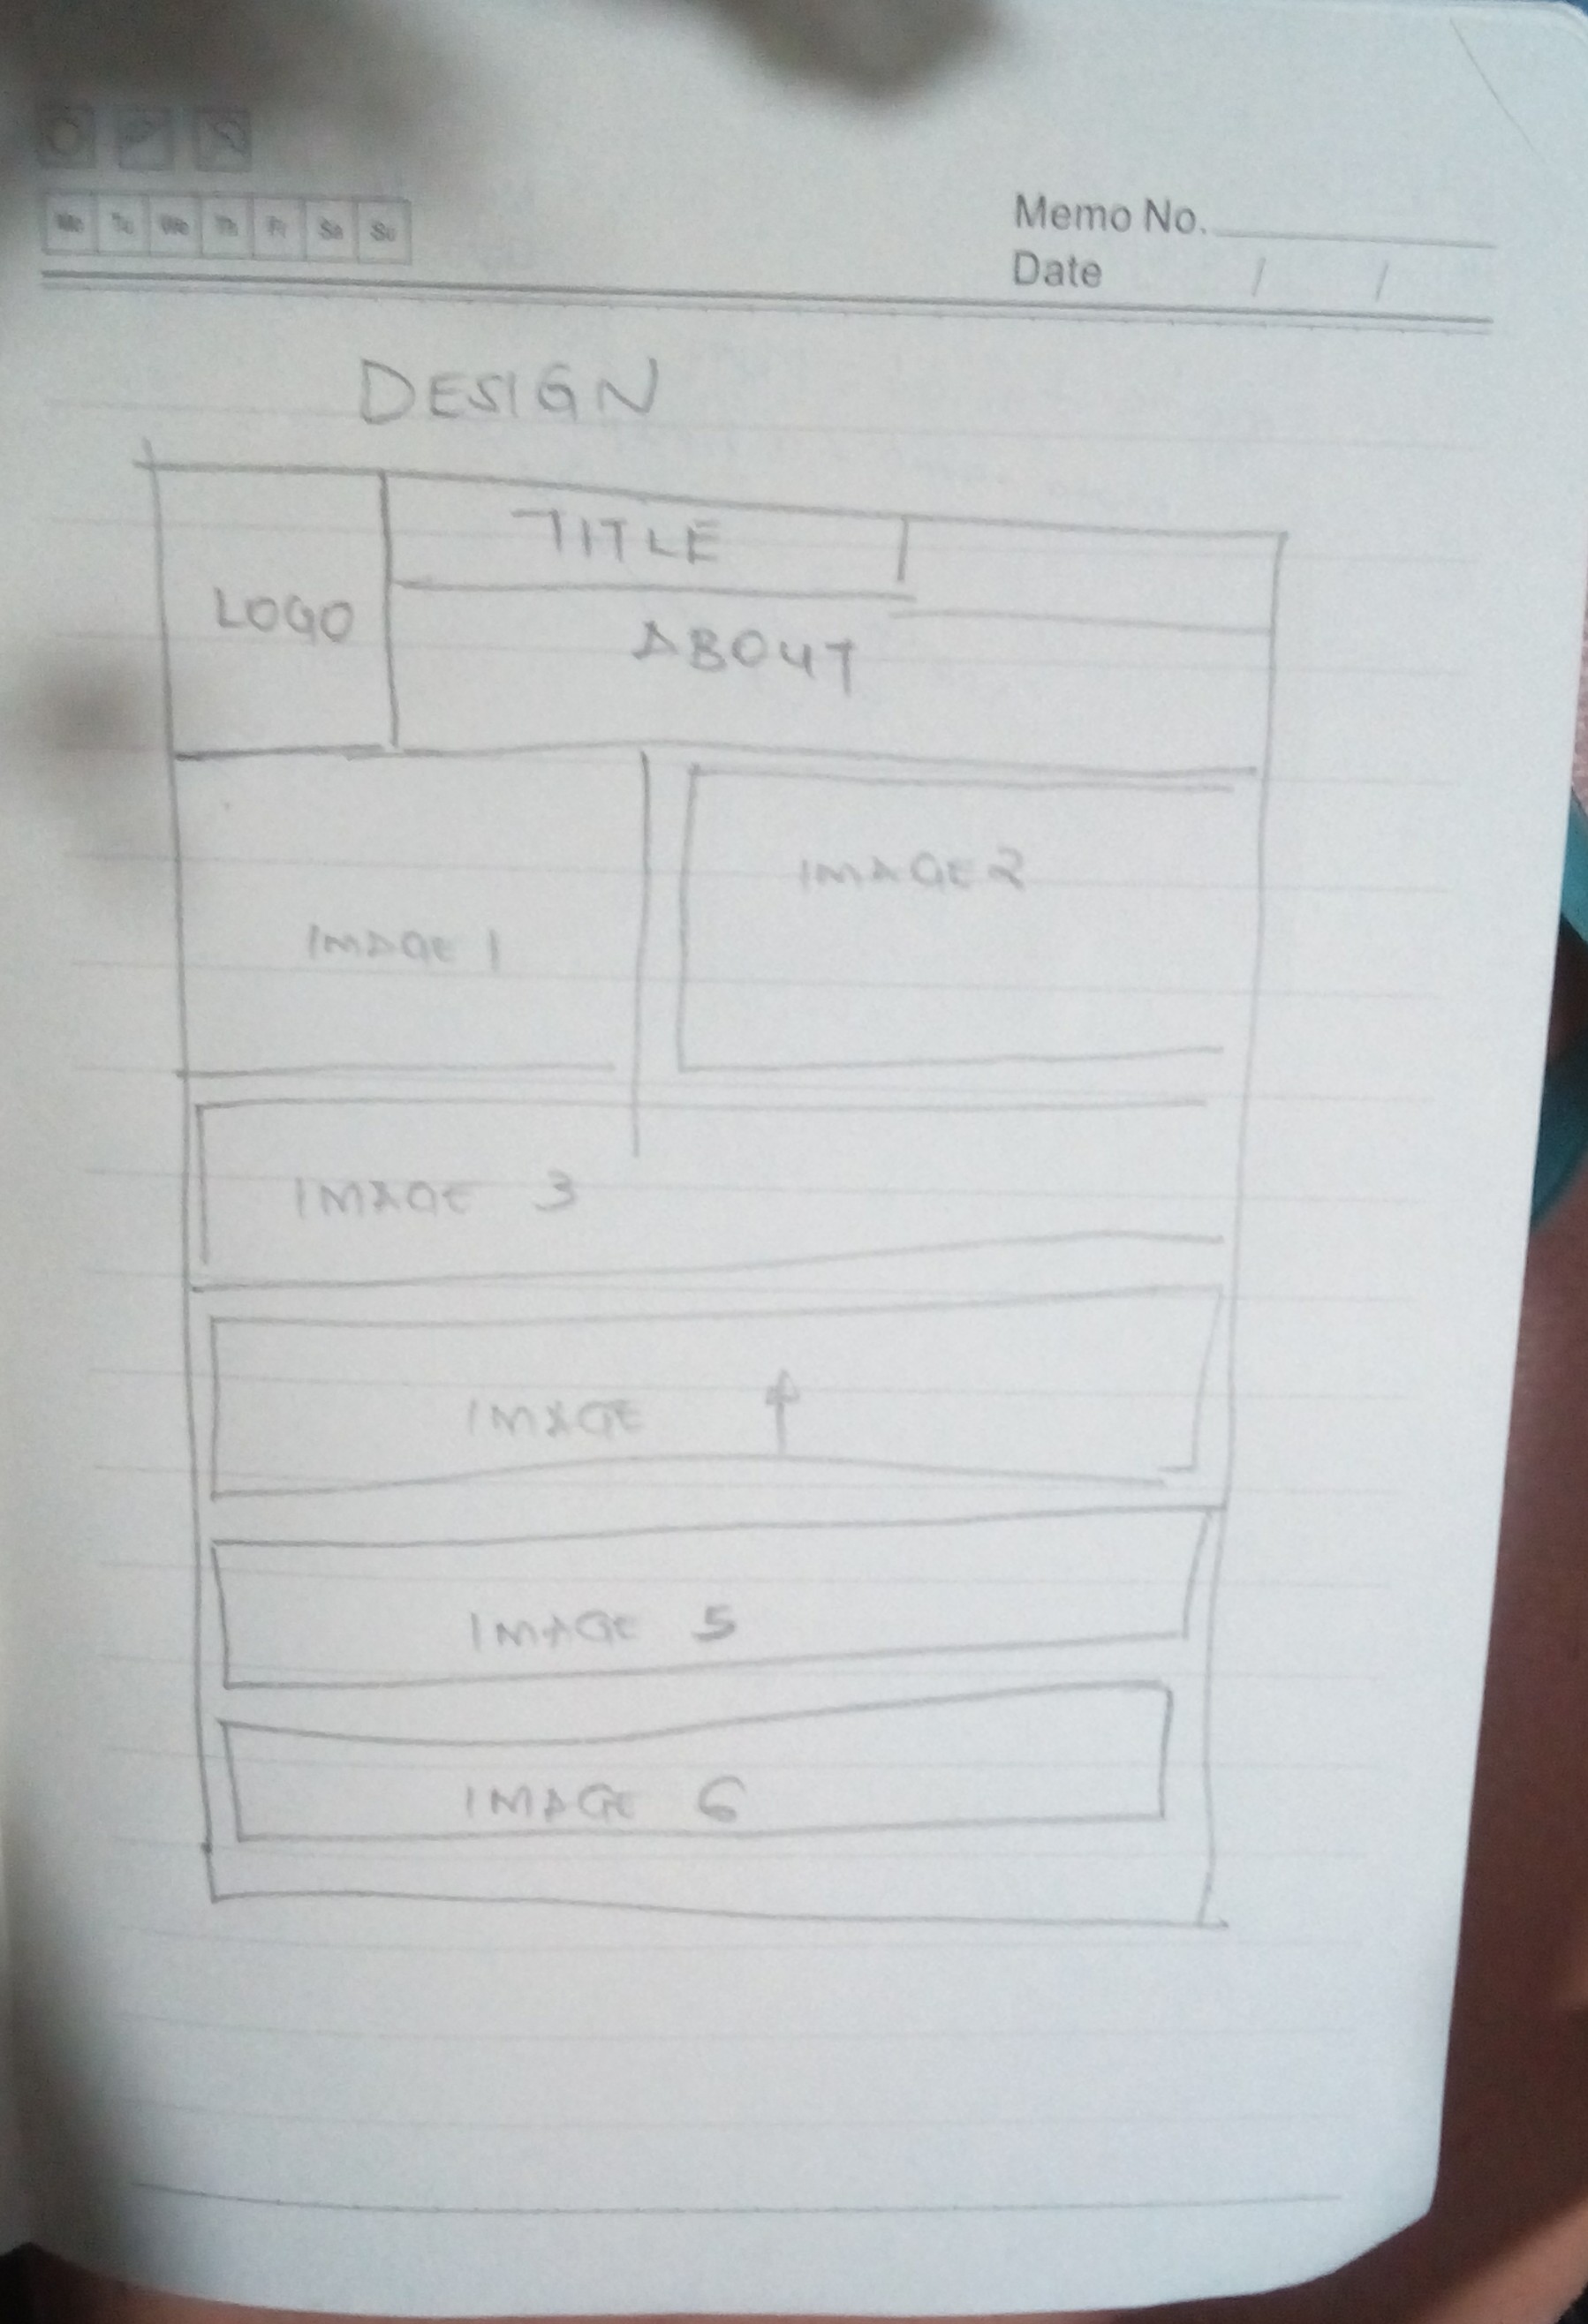 Mo Tu We Th Fr Sa Su
Memo No.
Date / /
DESIGN
TITLE
LOGO
ABOUT
IMAGE 1
IMAGE 2
IMAGE 3
IMAGE 4
IMAGE 5
IMAGE 6